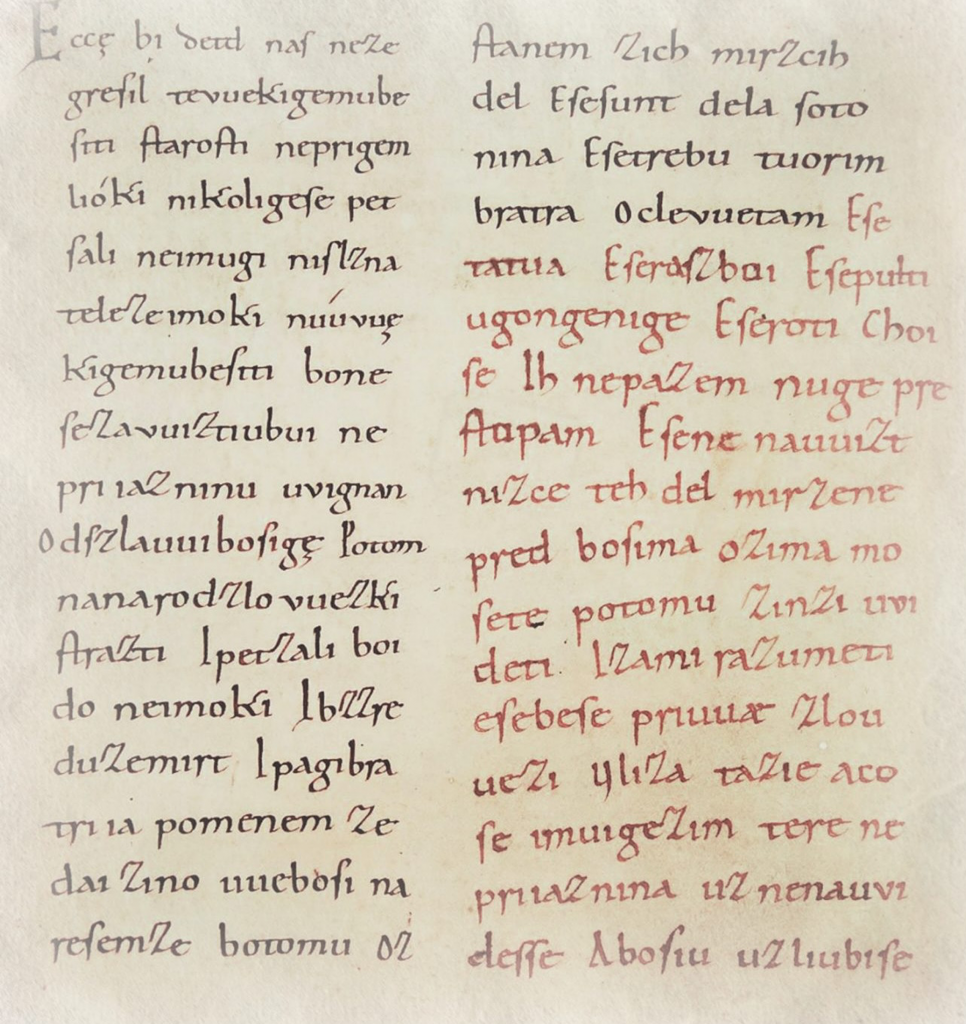 Eccę bi detd naſ neze
greſil tevuekigemube
ſiti ſtaroſti neprigem
lióki nikoligeſe pet
ſali neimugi niſlzna
telezeimoki núúvuę
kigemubeſiti bone
ſezavuiztiubui ne
priiazninu uvignan
Odſzlauuiboſigę Potom
nanarodzlovuezki
ſtrazti Ipetzali boi
do neimoki Ibzzre
duzemirt Ipagibra
triia pomenem ze
dai zino uueboſi na
reſemze botomu oz
ſtanem zich mirzcih
del Eſeſunt dela ſoto
nina Eſetrebu tuorim
bratra Oclevuetam Eſe
tatua Eſeraſzboi Eſepulti
ugongenige Eſeroti Choi
ſe Ih nepazem nuge pre
ſtopam Eſene nauuizt
nizce teh del mirzene
pred boſima ozima mo
ſete potomu zinzi uvi
deti. Izami razumeti
eſebeſe priuuæ zlou
uezi Uliza tazie aco
ſe imuigezim tere ne
priiaznina uz nenauvi
deſſe Aboſiu uzliubiſe